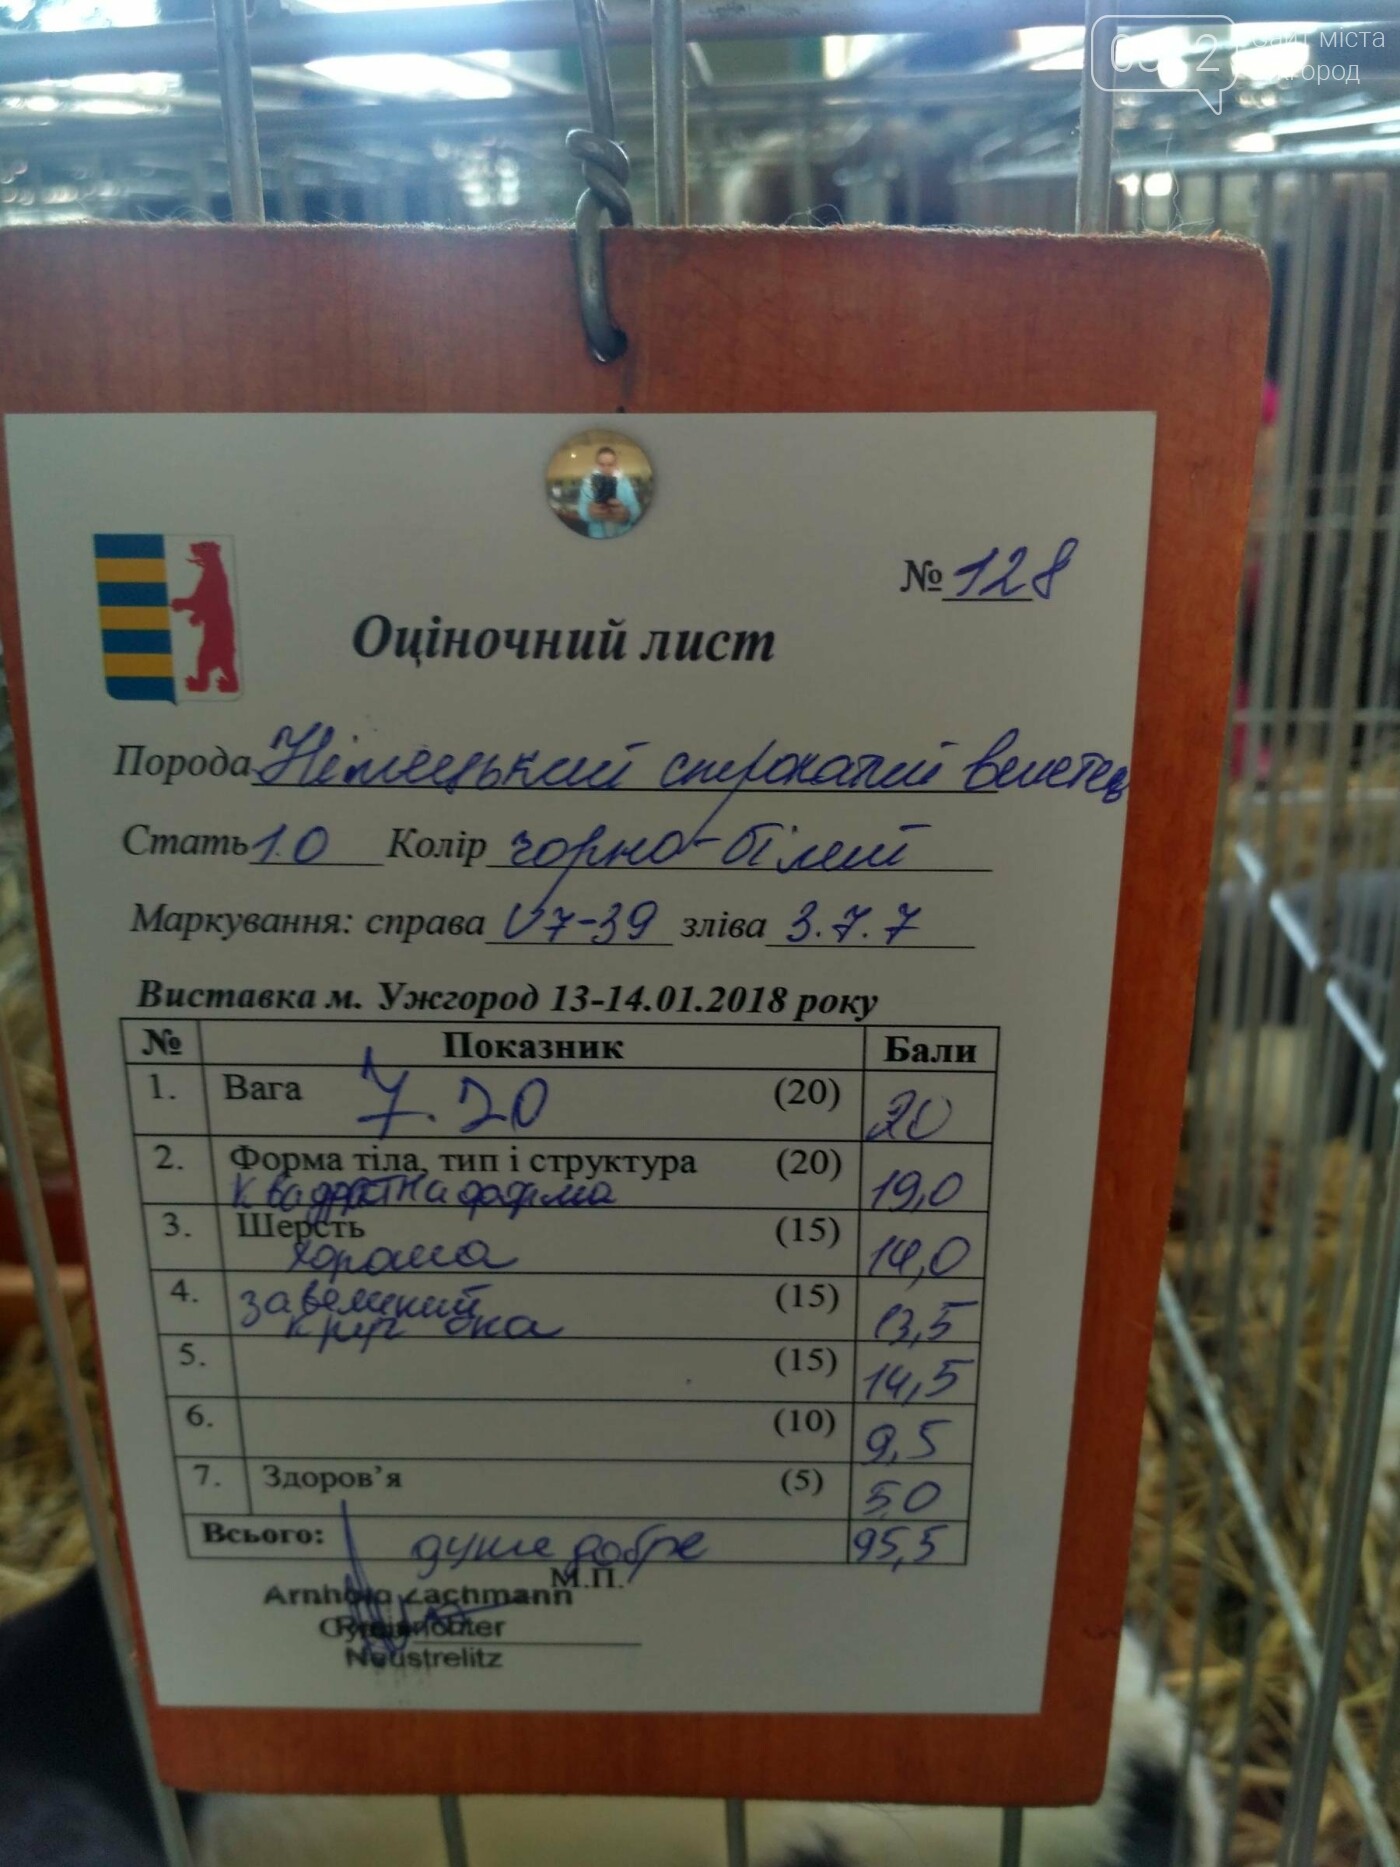 сайт міста
Ужгород
№ 128
Оціночний лист
Порода Німецький строкатий велетень
Стать 1.0 Колір чорно-білий
Маркування: справа U7-39 зліва 3.7.7
Виставка м. Ужгород 13-14.01.2018 року
№ Показник Бали
1. Вага 7.20 (20) 20
2. Форма тіла, тип і структура (20) 19,0
квадратна форма
3. Шерсть (15) 14,0
хороша
4. завеликий (15) 13,5
5. (15) 14,5
6. (10) 9,5
7. Здоров'я (5) 5.0
Всього: дуже добре 95,5
М.П.
Arnhold Lachmann
Neustrelitz